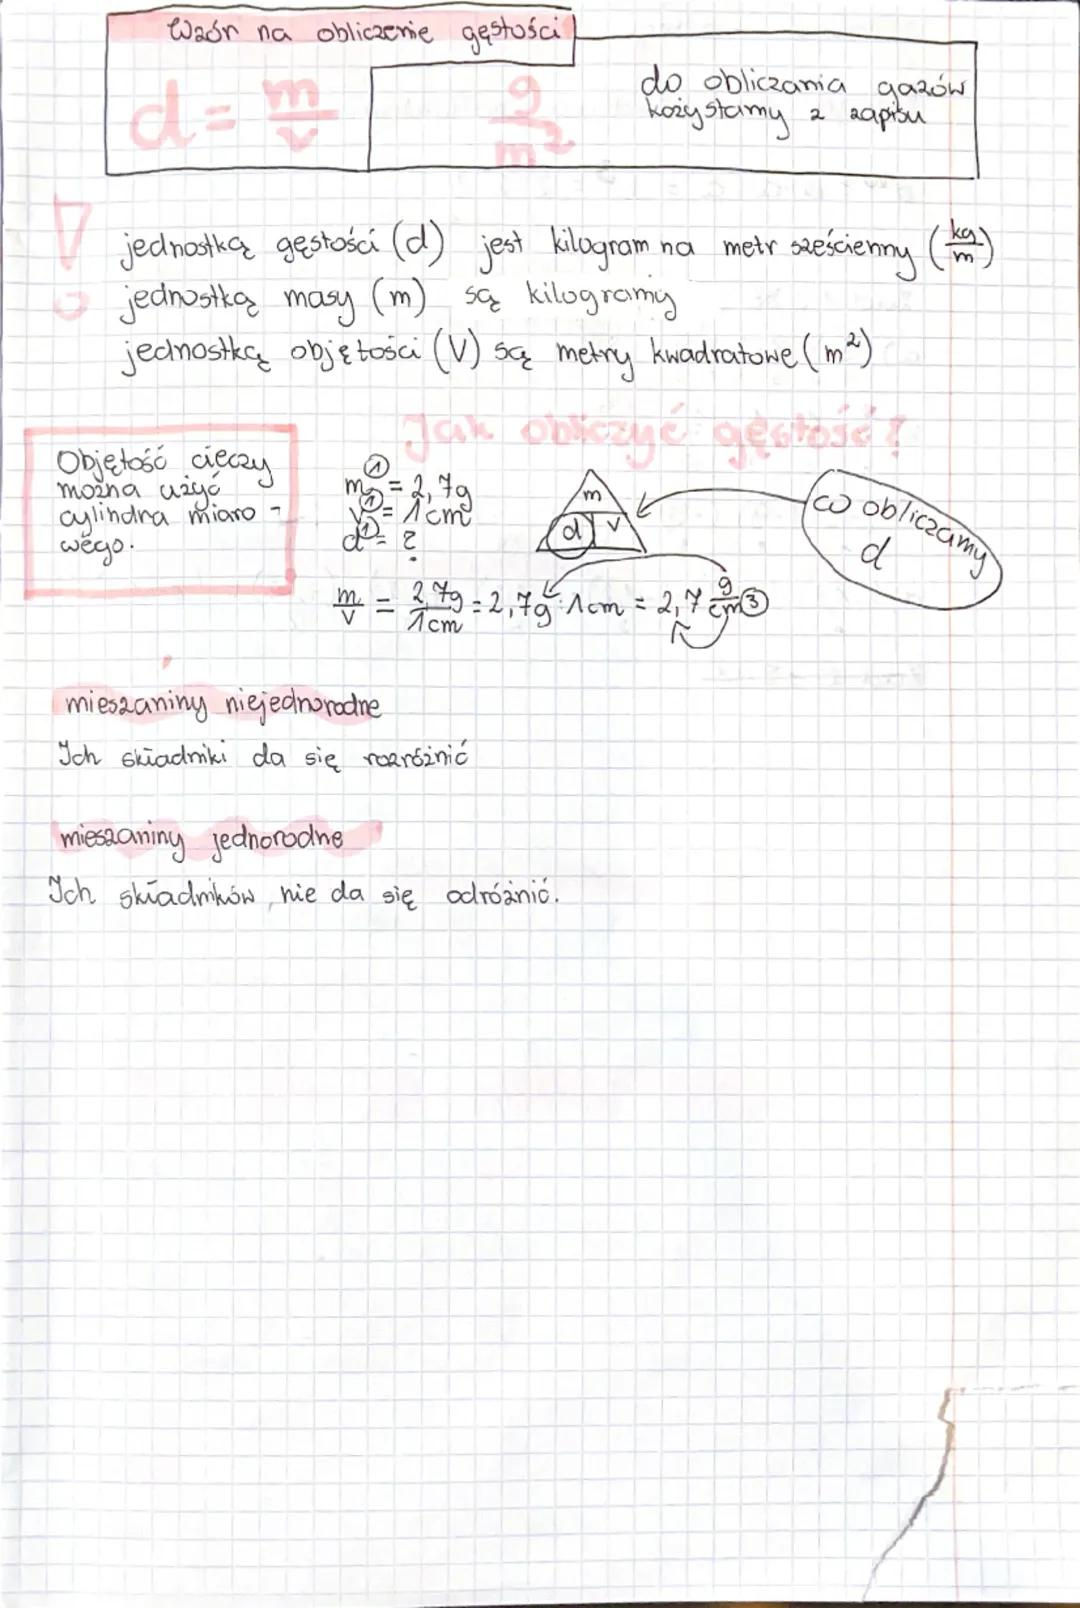 Wzór na obliczenie gęstości
d = m/v
g/m²
do obliczania gazów
kożystamy z zapisu
!
jednostką gęstości (d) jest kilogram na metr sześcienny (kg/m)
jednostką masy (m) są kilogramy
jednostką objętości (V) są metry kwadratowe (m²)
Jak obliczyć gęstość?
Objętość cieczy
można użyć
cylindra miaro-
wego.
m① = 2,7g
v① = 1cm
d① = ?
m
d v
co obliczamy
d
m/v = 2,7g/1cm = 2,7g : 1cm = 2,7 g/cm③
mieszaniny niejednorodne
Ich składniki da się rozróżnić
mieszaniny jednorodne
Ich składników nie da się odróżnić.